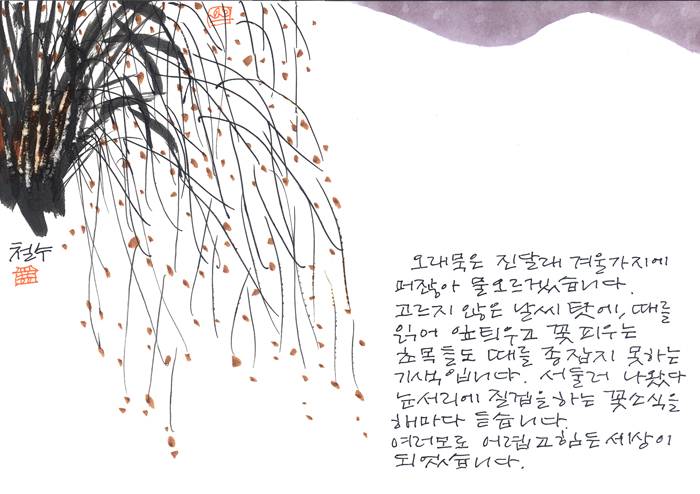 철수
오래묵은 진달래 겨울가지에
머잖아 물오르겠습니다.
고르지 않은 날씨 탓에, 때를
잃어 잎틔우고 꽃 피우는
초목들도 때를 종잡지 못하는
기색입니다. 서둘러 나왔다
눈서리에 질겁을하는 꽃소식을
해마다 듣습니다.
여러모로 어렵고 힘든 세상이
되었습니다.